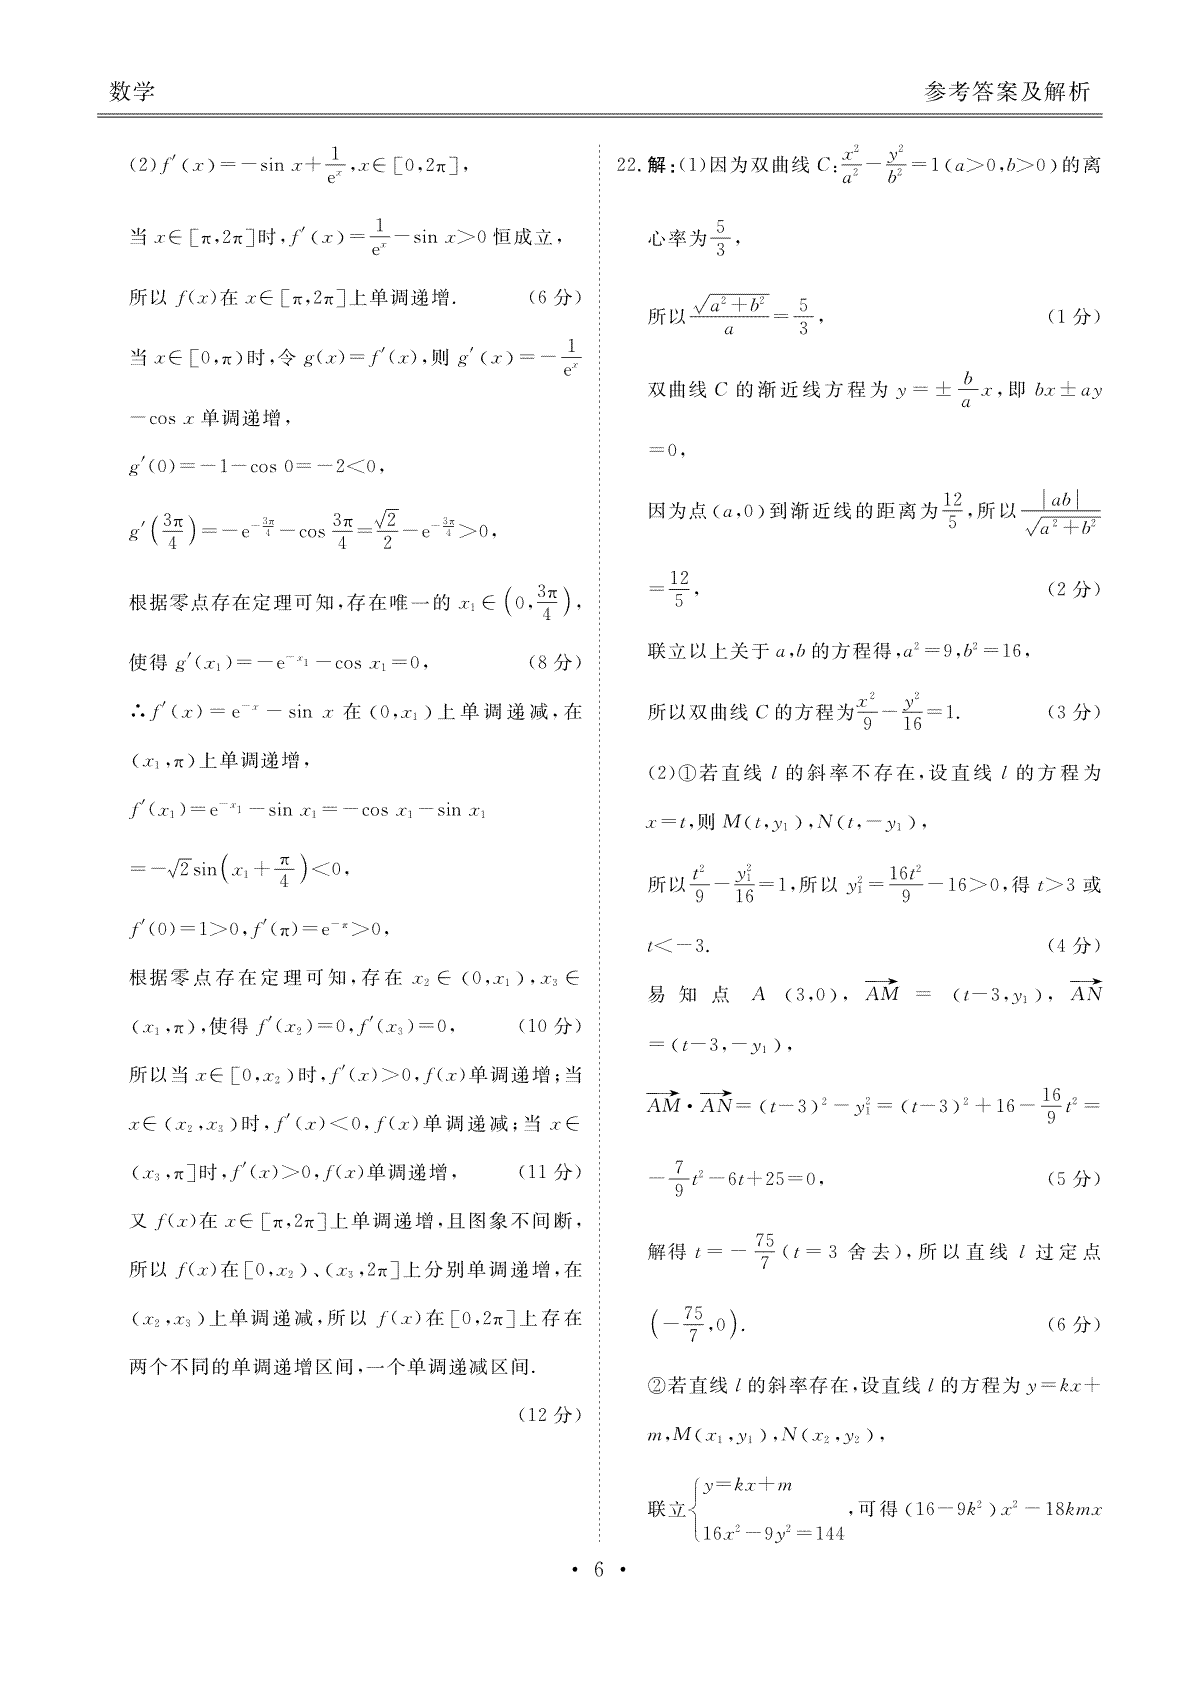 数学
参考答案及解析
(2)f′(x)=-sin x+1/eˣ,x∈[0,2π],
当 x∈[π,2π]时,f′(x)=1/eˣ-sin x>0 恒成立,
所以 f(x)在 x∈[π,2π]上单调递增. (6 分)
当 x∈[0,π)时,令 g(x)=f′(x),则 g′(x)=-1/eˣ
-cos x 单调递增,
g′(0)=-1-cos 0=-2<0,
g′(3π/4)=-e^(-3π/4)-cos 3π/4=√2/2-e^(-3π/4)>0,
根据零点存在定理可知,存在唯一的 x₁∈(0,3π/4),
使得 g′(x₁)=-e^(-x₁)-cos x₁=0, (8 分)
∴f′(x)=e^(-x)-sin x 在(0,x₁)上单调递减,在
(x₁,π)上单调递增,
f′(x₁)=e^(-x₁)-sin x₁=-cos x₁-sin x₁
=-√2sin(x₁+π/4)<0,
f′(0)=1>0,f′(π)=e^(-π)>0,
根据零点存在定理可知,存在 x₂∈(0,x₁),x₃∈
(x₁,π),使得 f′(x₂)=0,f′(x₃)=0, (10 分)
所以当 x∈[0,x₂)时,f′(x)>0,f(x)单调递增;当
x∈(x₂,x₃)时,f′(x)<0,f(x)单调递减;当 x∈
(x₃,π]时,f′(x)>0,f(x)单调递增, (11 分)
又 f(x)在 x∈[π,2π]上单调递增,且图象不间断,
所以 f(x)在[0,x₂)、(x₃,2π]上分别单调递增,在
(x₂,x₃)上单调递减,所以 f(x)在[0,2π]上存在
两个不同的单调递增区间,一个单调递减区间.
(12 分)
22.解:(1)因为双曲线 C:x²/a²-y²/b²=1(a>0,b>0)的离
心率为5/3,
所以√(a²+b²)/a=5/3, (1 分)
双曲线 C 的渐近线方程为 y=±b/a x,即 bx±ay
=0,
因为点(a,0)到渐近线的距离为12/5,所以|ab|/√(a²+b²)
=12/5, (2 分)
联立以上关于 a,b 的方程得,a²=9,b²=16,
所以双曲线 C 的方程为x²/9-y²/16=1. (3 分)
(2)①若直线 l 的斜率不存在,设直线 l 的方程为
x=t,则 M(t,y₁),N(t,-y₁),
所以t²/9-y₁²/16=1,所以 y₁²=16t²/9-16>0,得 t>3 或
t<-3. (4 分)
易知点 A (3,0), AM→ = (t-3,y₁), AN→
=(t-3,-y₁),
AM→·AN→=(t-3)²-y₁²=(t-3)²+16-16/9t²=
-7/9t²-6t+25=0, (5 分)
解得 t=-75/7(t=3 舍去),所以直线 l 过定点
(-75/7,0). (6 分)
②若直线 l 的斜率存在,设直线 l 的方程为 y=kx+
m,M(x₁,y₁),N(x₂,y₂),
联立{y=kx+m
16x²-9y²=144,可得(16-9k²)x²-18kmx
• 6 •